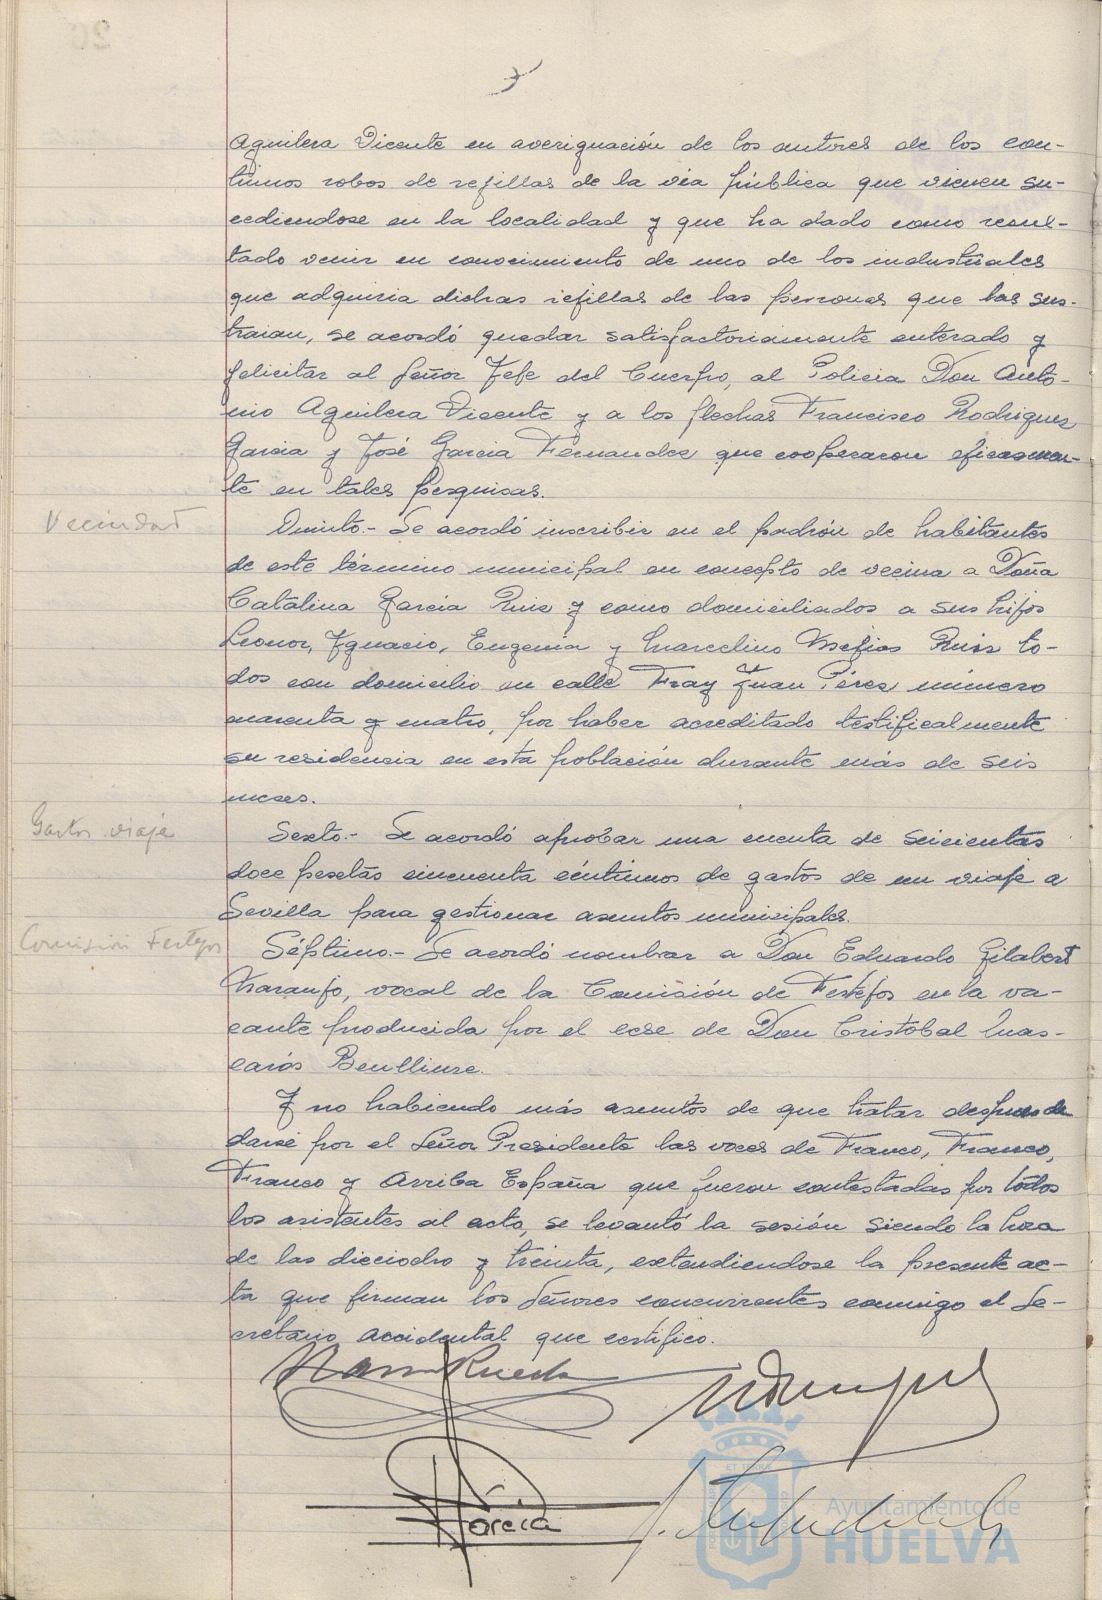 Aguilera Vicente en averiguación de los autores de los con-
tinuos robos de rejillas de la vía pública que vienen su-
cediendose en la localidad y que ha dado como resul-
tado venir en conocimiento de uno de los industriales
que adquiria dichas rejillas de las personas que las sus-
traian, se acordó quedar satisfactoriamente enterado y
felicitar al Señor Jefe del Cuerpo, al Policia Don Anto-
nio Aguilera Vicente y a los flechas Francisco Rodriguez
Garcia y José Garcia Fernandez que cooperaron eficazmen-
te en tales pesquisas.
Vecindad
Quinto.- Se acordó inscribir en el padrón de habitantes
de este término municipal en concepto de vecina a Doña
Catalina García Ruiz y como domiciliados a sus hijos
Leonor, Ygnacio, Eugenia y Marcelino Mefias Ruiz to-
dos con domicilio en calle Fray Juan Pérez número
cuarenta y cuatro, por haber acreditado testificalmente
su residencia en esta población durante más de seis
meses.
Gastos viaje
Sexto.- Se acordó aprobar una cuenta de seicientas
doce pesetas cincuenta céntimos de gastos de un viaje a
Sevilla para gestionar asuntos municipales.
Comisión Festejos
Séptimo.- Se acordó nombrar a Don Eduardo Gilabert
Naranjo, vocal de la Comisión de Festejos en la va-
cante producida por el cese de Don Cristobal Mas-
carós Benlliure.
Y no habiendo más asuntos de que tratar despues de
darse por el Señor Presidente las voces de Franco, Franco,
Franco y Arriba España que fueron contestadas por todos
los asistentes al acto, se levantó la sesión siendo la hora
de las dieciocho y treinta, extendiendose la presente ac-
ta que firman los Señores concurrentes conmigo el Se-
cretario accidental que certifico.
García
Ayuntamiento de
HUELVA